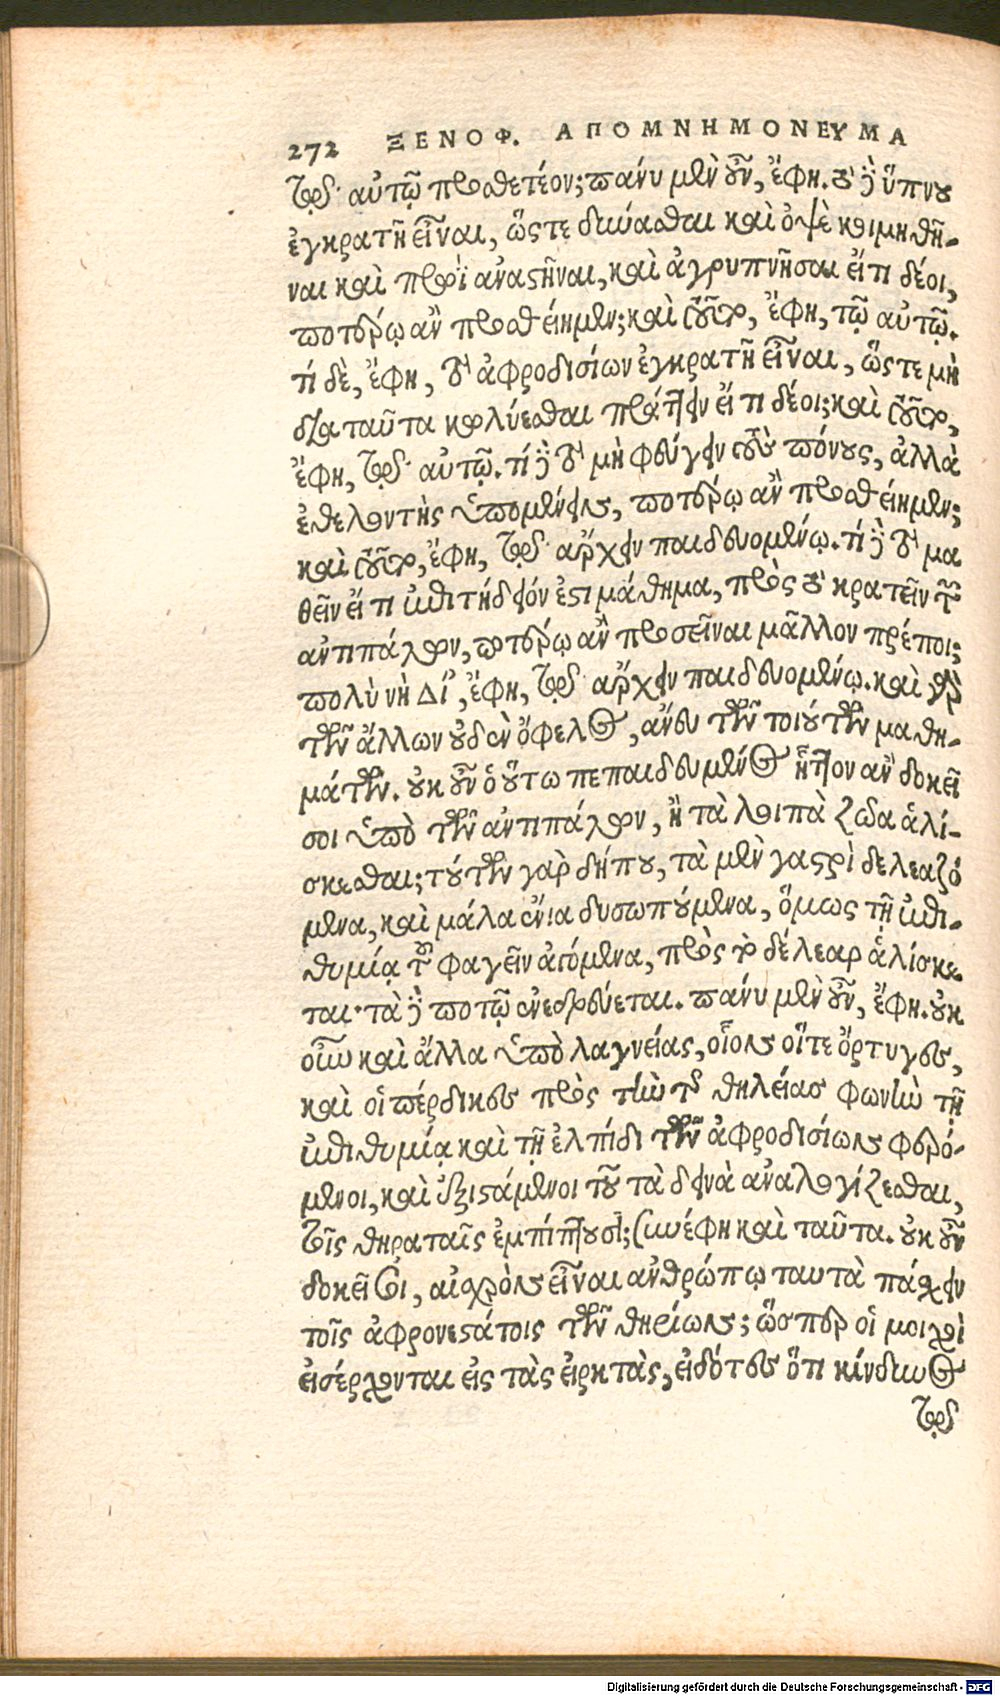 272 ΞΕΝΟΦ. ΑΠΟΜΝΗΜΟΝΕΥΜΑ
τῷδ' αὐτῷ προσθετέον; πάνυ μὲν οὖν, ἔφη. τὸ δὲ ὕπνου
ἐγκρατῆ εἶναι, ὥστε δύνασθαι καὶ ὀψὲ κοιμηθῆ-
ναι καὶ πρωῒ ἀναστῆναι, καὶ ἀγρυπνῆσαι εἴ τι δέοι,
ποτέρῳ ἂν προσθείημεν; καὶ τοῦτο, ἔφη, τῷ αὐτῷ.
τί δὲ, ἔφη, τὸ ἀφροδισίων ἐγκρατῆ εἶναι, ὥστε μὴ
διὰ ταῦτα κωλύεσθαι πράττειν εἴ τι δέοι; καὶ τοῦτο,
ἔφη, τῷδ' αὐτῷ. τί δὲ τὸ μὴ φεύγειν τοὺς πόνους, ἀλλὰ
ἐθελοντὴς ὑπομένειν, ποτέρῳ ἂν προσθείημεν;
καὶ τοῦτο, ἔφη, τῷδ' ἄρχειν παιδευομένῳ. τί δὲ τὸ μα
θεῖν εἴ τι ἐπιτήδειόν ἐστι μάθημα, πρὸς τὸ κρατεῖν τῶν
ἀντιπάλων, ποτέρῳ ἂν προσεῖναι μᾶλλον πρέποι;
πολὺ νὴ Δί', ἔφη, τῷδ' ἄρχειν παιδευομένῳ. καὶ γὰρ
τῶν ἄλλων οὐδὲν ὄφελος, ἄνευ τῶν τοιούτων μαθη-
μάτων. οὐκ οὖν ὁ οὕτω πεπαιδευμένος ἧττον ἂν δοκεῖ
σοι ὑπὸ τῶν ἀντιπάλων, ἢ τὰ λοιπὰ ζῶα ἁλί-
σκεσθαι; τούτων γὰρ δήπου, τὰ μὲν γαστρὶ δελεαζό
μενα, καὶ μάλα ἔνια δυσωπούμενα, ὅμως τῇ ἐπι-
θυμίᾳ τοῦ φαγεῖν ἀγόμενα, πρὸς τὸ δέλεαρ ἁλίσκε
ται· τὰ δὲ ποτῷ ἐνεδρεύεται. πάνυ μὲν οὖν, ἔφη. οὐκ
οὖν καὶ ἄλλα ὑπὸ λαγνείας, οἷον οἵτε ὄρτυγες,
καὶ οἱ πέρδικες πρὸς τὴν τῆς θηλείας φωνὴν τῇ
ἐπιθυμίᾳ καὶ τῇ ἐλπίδι τῶν ἀφροδισίων φερό-
μενοι, καὶ ἐξιστάμενοι τοῦ τὰ δεινὰ ἀναλογίζεσθαι,
τοῖς θηραταῖς ἐμπίπτουσι; συνέφη καὶ ταῦτα. οὐκ οὖν
δοκεῖ σοι, αἰσχρὸν εἶναι ἀνθρώπῳ ταυτὰ πάσχειν
τοῖς ἀφρονεστάτοις τῶν θηρίων; ὥσπερ οἱ μοιχοὶ
εἰσέρχονται εἰς τὰς εἱρκτὰς, εἰδότες ὅτι κίνδυνος
τῷδ
Digitalisierung gefördert durch die Deutsche Forschungsgemeinschaft - DFG